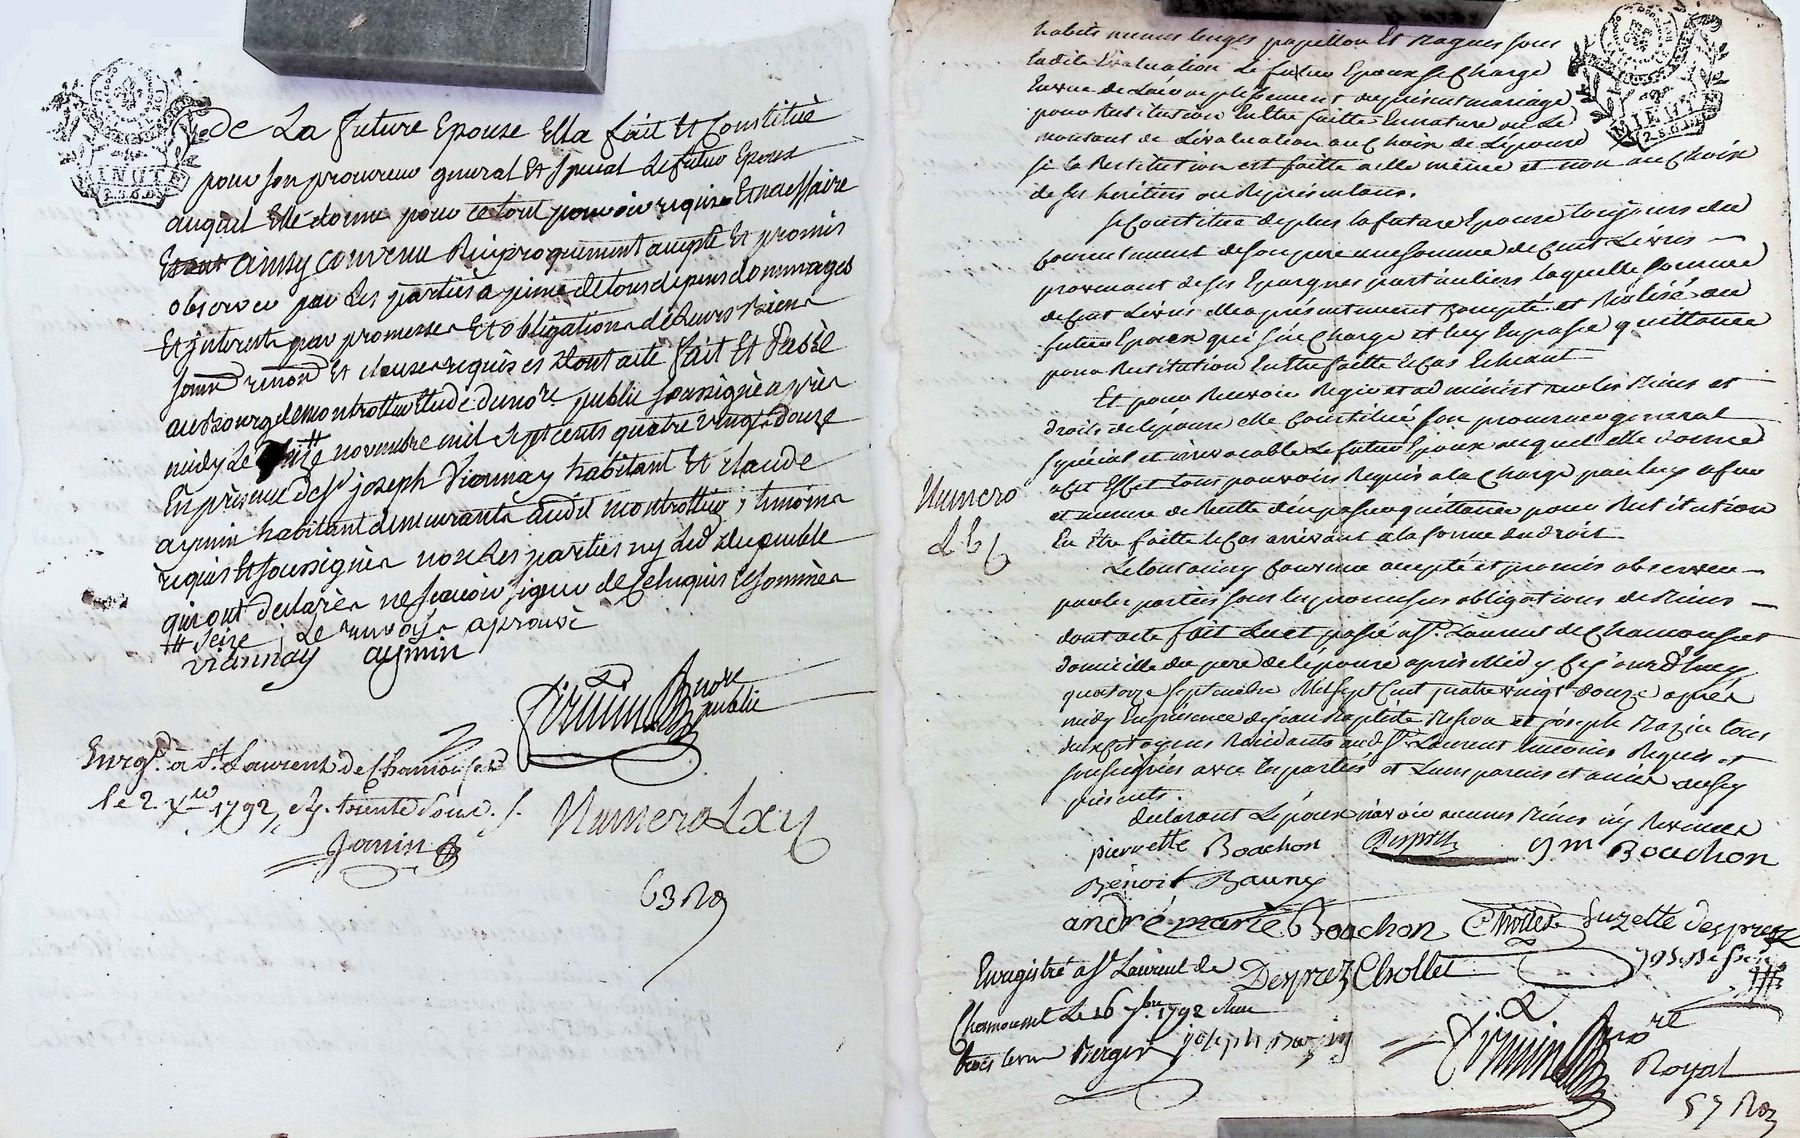 de La future Epouse Ella fait Et Constitué
pour son procureur general Et special Le futur Epoux
auquel Elle donne pour ce tout pouvoir requis Et necessaire
ainsy convenu Reciproquement accepté Et promis
observer par Les parties a peine de tous depens dommages
Et interests par promesses Et obligations de Leurs Biens
renond Et clauses requises dont acte fait Et Passé
au Bourg de montrottier Etude du nore. public soussigné après
midy Le novembre mil sept cents quatre vingt douze
En présence de Sr joseph Viannay habitant Et claude
aymin habitant demeurants audit montrottier, temoins
requis Et soussignés non Les parties ny
qui ont declarés ne scavoir signer de ce Enquis Et sommés
# seize ; Le renvoy aprouvé
viannay aymin
nore
public
Enregé. a St Laurent de Chamousset
le 2 Xre 1792, trente sous
Janin
Numero Lxy
63 Ro
MINUTE
habits menus linges papillon Et bagues sous
ladite Evaluation Le futur Epoux se Charge
En vue de L'accomplissement du present mariage
pour Restitution En Etre faitte En nature ou Le
montant de L'évaluation au Choix de L'épouse
si la Restitution est faitte a elle même et non au Choix
de ses héritiers ou Representans.
Se Constitue de plus la future Epouse toujours du
consentement de son pere une somme de Cent Livres
provenant de ses Epargnes particuliers laquelle somme
de Cent Livres elle a présentement Compté et Réalisé au
futur Epoux qui s'en Charge et luy En passe quittance
pour Restitution En Etre faitte le Cas Echeant
Et pour Recevoir Regir et administrer les Biens et
droits de l'épouse elle Constitue son procureur general
special et irrevocable Le futur Epoux auquel elle donne
a cet Effet tous pouvoirs Requis a la Charge par luy
et mesure de Recette d'en passer quittance pour Restitution
En Etre faitte le Cas arrivant a la forme du droit
Le tout ainsy Convenu accepté et promis observer
par les parties sous les promesses obligations de Biens
dont acte fait Lu et passé a St. Laurent de Chamousset
domicille du pere de l'épouse après Midy Ce jourd'huy
quatorze septembre Mil sept Cent quatre vingt douze après
midy En présence de jean Baptiste et joseph Bazin tous
deux Citoyens Residants aud. St. Laurent temoins Requis et
soussignés avec les parties et Leurs parens et amis aussy
présents.
declarant L'époux n'avoir aucuns Biens ny Revenus
Numero
pierrette Boachon gm Boachon
Benoit Bauny
andré marie Boachon Chollet Suzette desprez
Desprez Chollet
Enregistré a St Laurent de
Chamousset Le 16 7bre. 1792
Berger joseph Bazin
nore
Royal
57 Ro
MINUTE